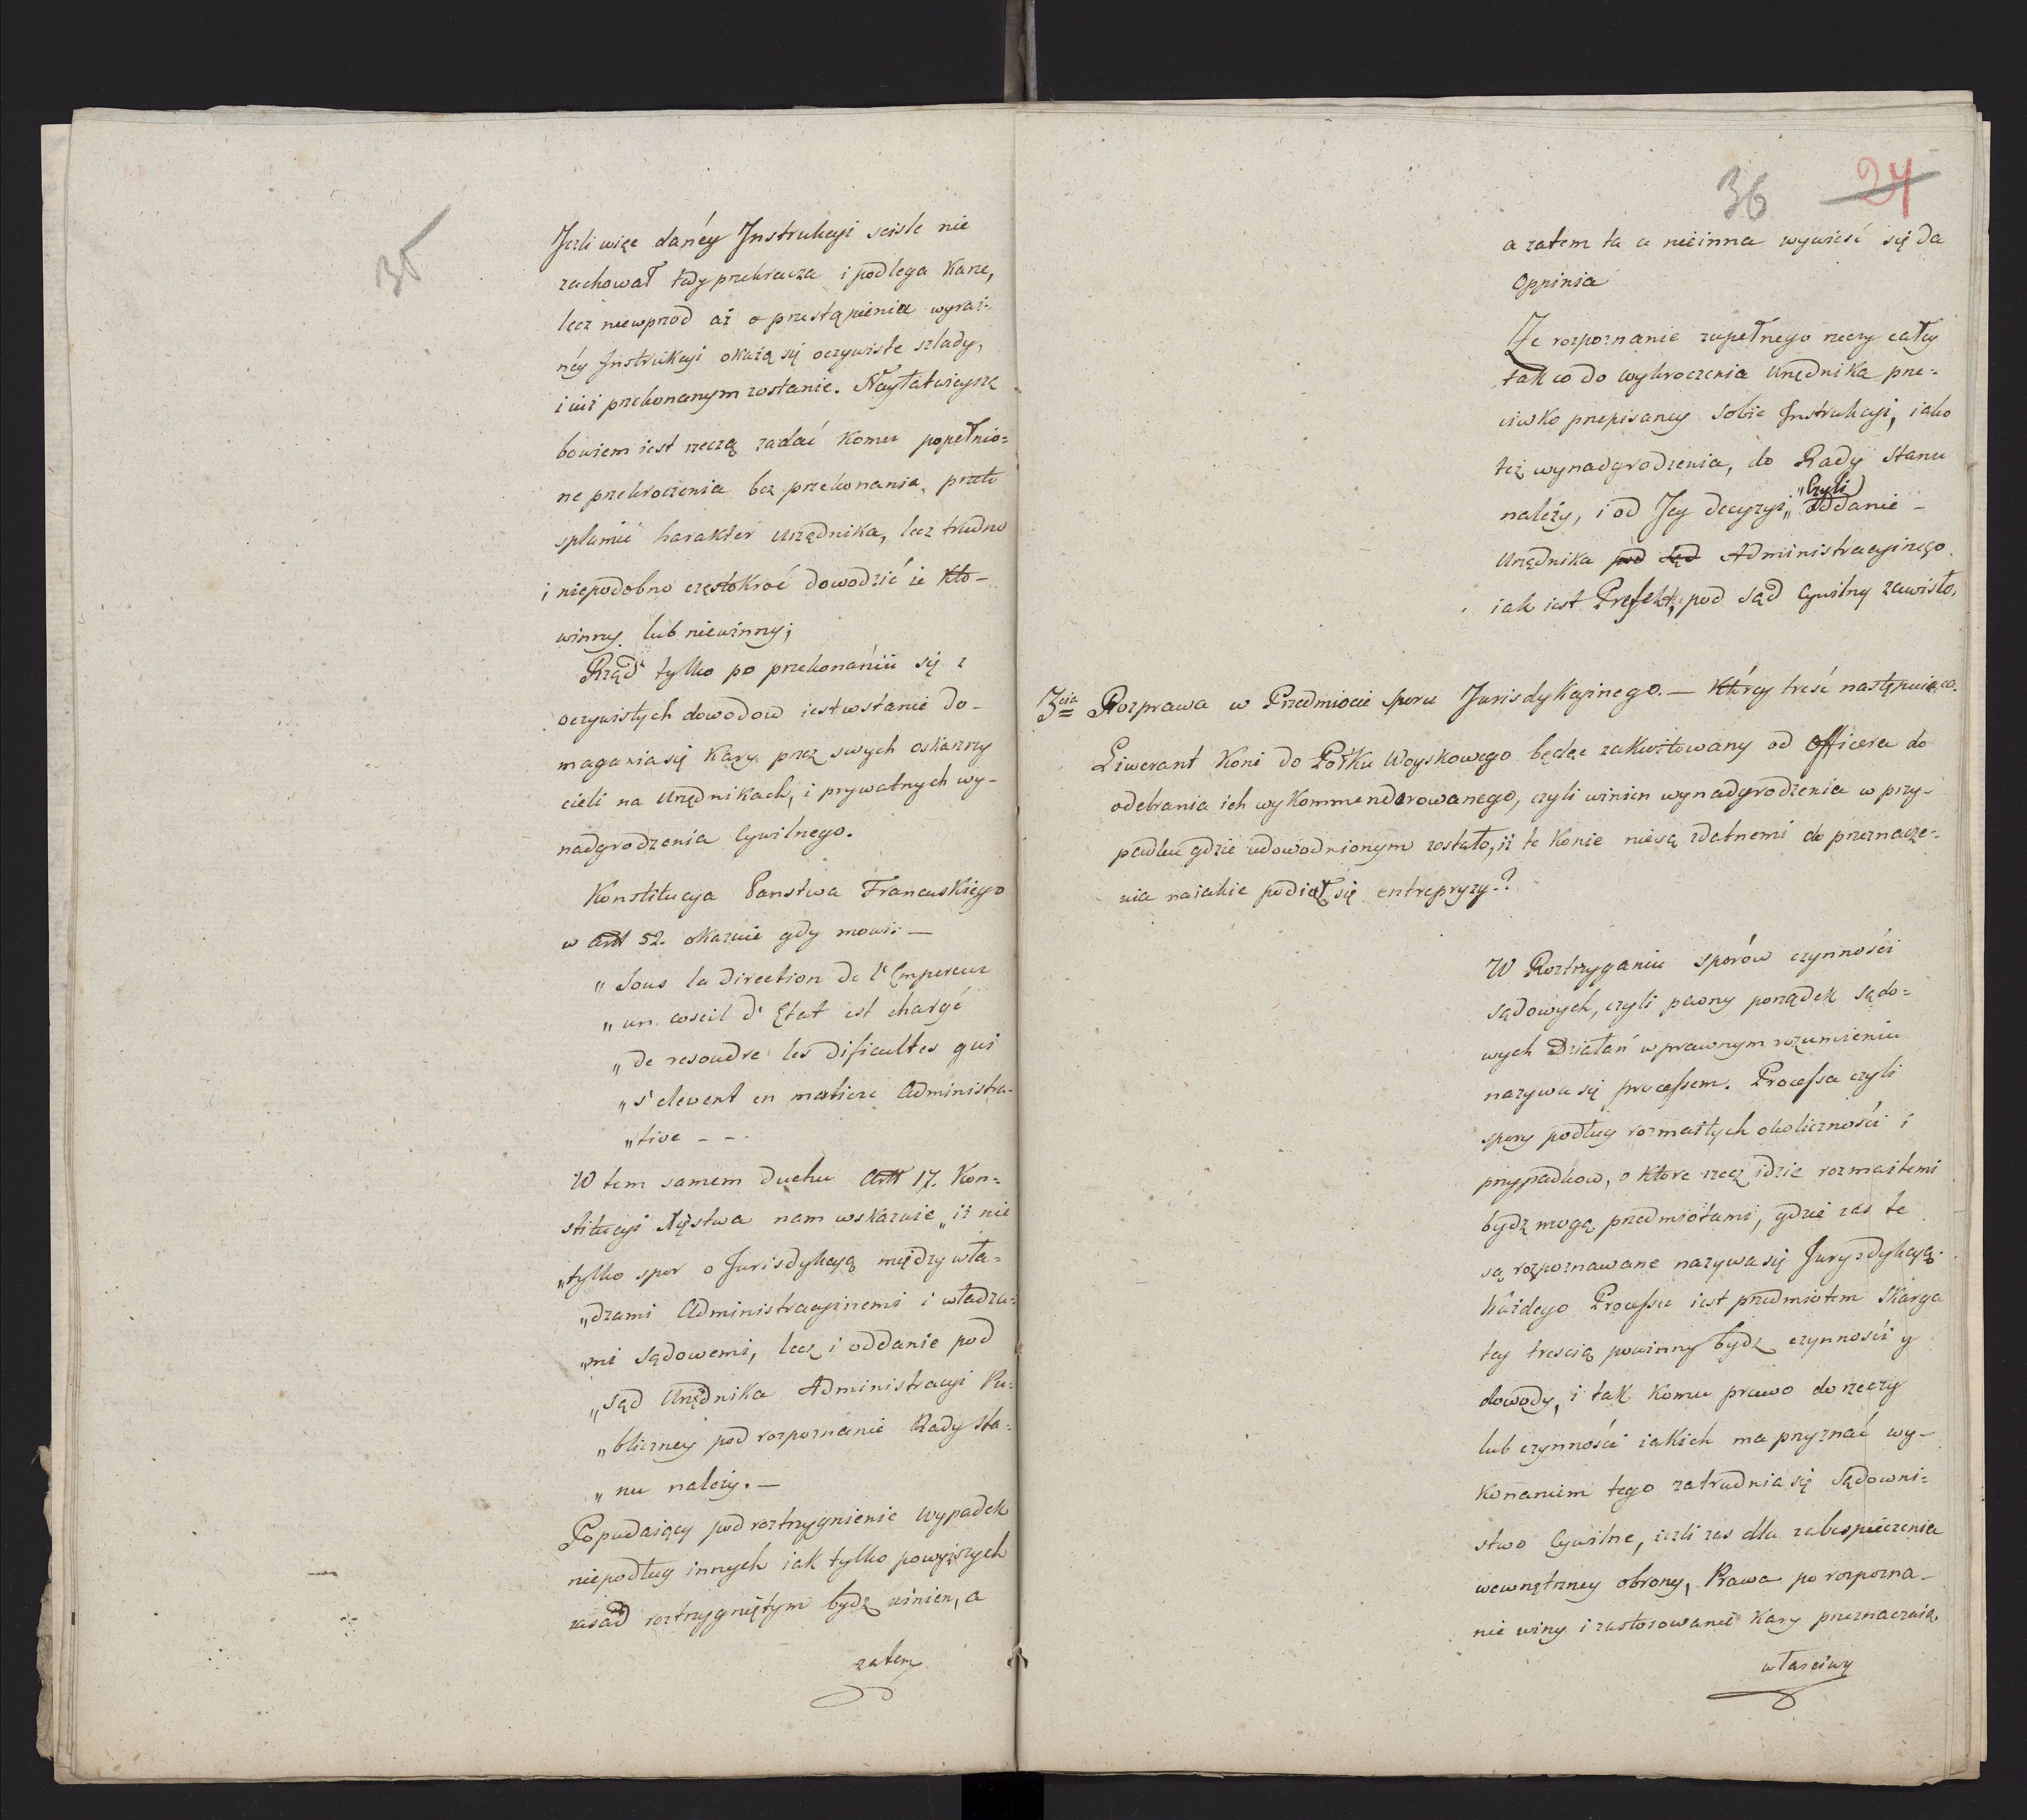 35
Jeżli więc daney Instrukcyi scisle nie
zachował tedy przekracza i podlega Karze,
lecz niewprzod aż o przestąpienia wyraź-
néy Instrukcyi okażą się oczywiste szlady,
i iuż przekonanym zostanie. Nayłatwieyszą
bowiem iest rzeczą zadać Komu popełnio-
ne przekroczenia bez przekonania, przeto
splamić harakter Urzędnika, lecz trudno
i niepodobno częstokroć dowodzić że Kto-
winny lub niewinny;
Rząd tylko po przekonaniu się z
oczywistych dowodow iest wstanie do-
magania się Kary przez swych oskarzy
cieli na Urzędnikach, i prywatnych wy-
nadgrodzenia Cywilnego.
Konstitucya Panstwa Francuskiego
w Artt 52. okazuie gdy mowi: —
„ Sous la direction de l'Empereur
„ un coseil d' Etat est chargé
„ de resoudre les dificultes qui
„ s'elevent en matiere Administra-
„ tive - - .
W tem samem duchu Artt 17. Kon-
stitucyi Xięstwa nam wskazuie „ iż nie
„ tylko spor o Jurisdykcyą między wła-
„ dzami Administracyinemi i władza-
„ mi sądowemi, lecz i oddanie pod
„ sąd Urzędnika Administracyi Pu-
„ bliczney pod rozpoznanie Rady Sta-
„ nu należy. —
Popadaiący pod roztrzygnienie wypadek
niepodług innych iak tylko powyższych
zasad roztrzygniętym bydź winien, a
zatem
36 24
a zatem ta a nieinna wywieść się da
Oppinia
Że rozpoznanie zupełnego rzeczy całey
tak co do wykroczenia Urzędnika prze-
ciwko przepisaney sobie Instrukcyi, iako
też wynadgrodzenia, do Rady Stanu
„ Czyli
należy, i od Jey decyzyi „ oddanie -
Urzędnika pod sąd Administracyinego
iak iest Prefekt, pod sąd Cywilny zawisło,
3cia Rozprawa w Przedmiocie sporu Jurisdykcyinego. — Którey treść następuiąca.
Liwerant Koni do Połku Woyskowego będąc zakwitowany od Officera do
odebrania ich wykommenderowanego, czyli winien wynadgrodzenia w przy-
padku gdzie udowodnionym zostało, iż te Konie niesą zdatnemi do przeznacze-
nia naiakie podiął się entrepryzy. ?
W Roztrzyganiu sporów czynności
sądowych, czyli pewny porządek sądo-
wych Działań w prawnym rozumieniu
nazywa się processem. Processa czyli
spory podług rozmaitych okoliczności i
przypadkow, o Ktore rzecz idzie rozmaitemi
bydź mogą przedmiotami, gdzie zas te
są rozpoznawane nazywa się Juryzdykcyą.
Każdego Processu iest przedmiotem Skarga
tey trescią powinny bydź czynności y
dowody, i tak Komu prawo do rzeczy
lub czynności iakich ma przyznać wy-
konaniem tego zatrudnia się Sądowni-
stwo Cywilne, ieżli zas dla zabespieczenia
wewnętrzney obrony, Prawa po rozpozna-
nie winy i zastosowanie Kary przeznaczaią,
właściwy